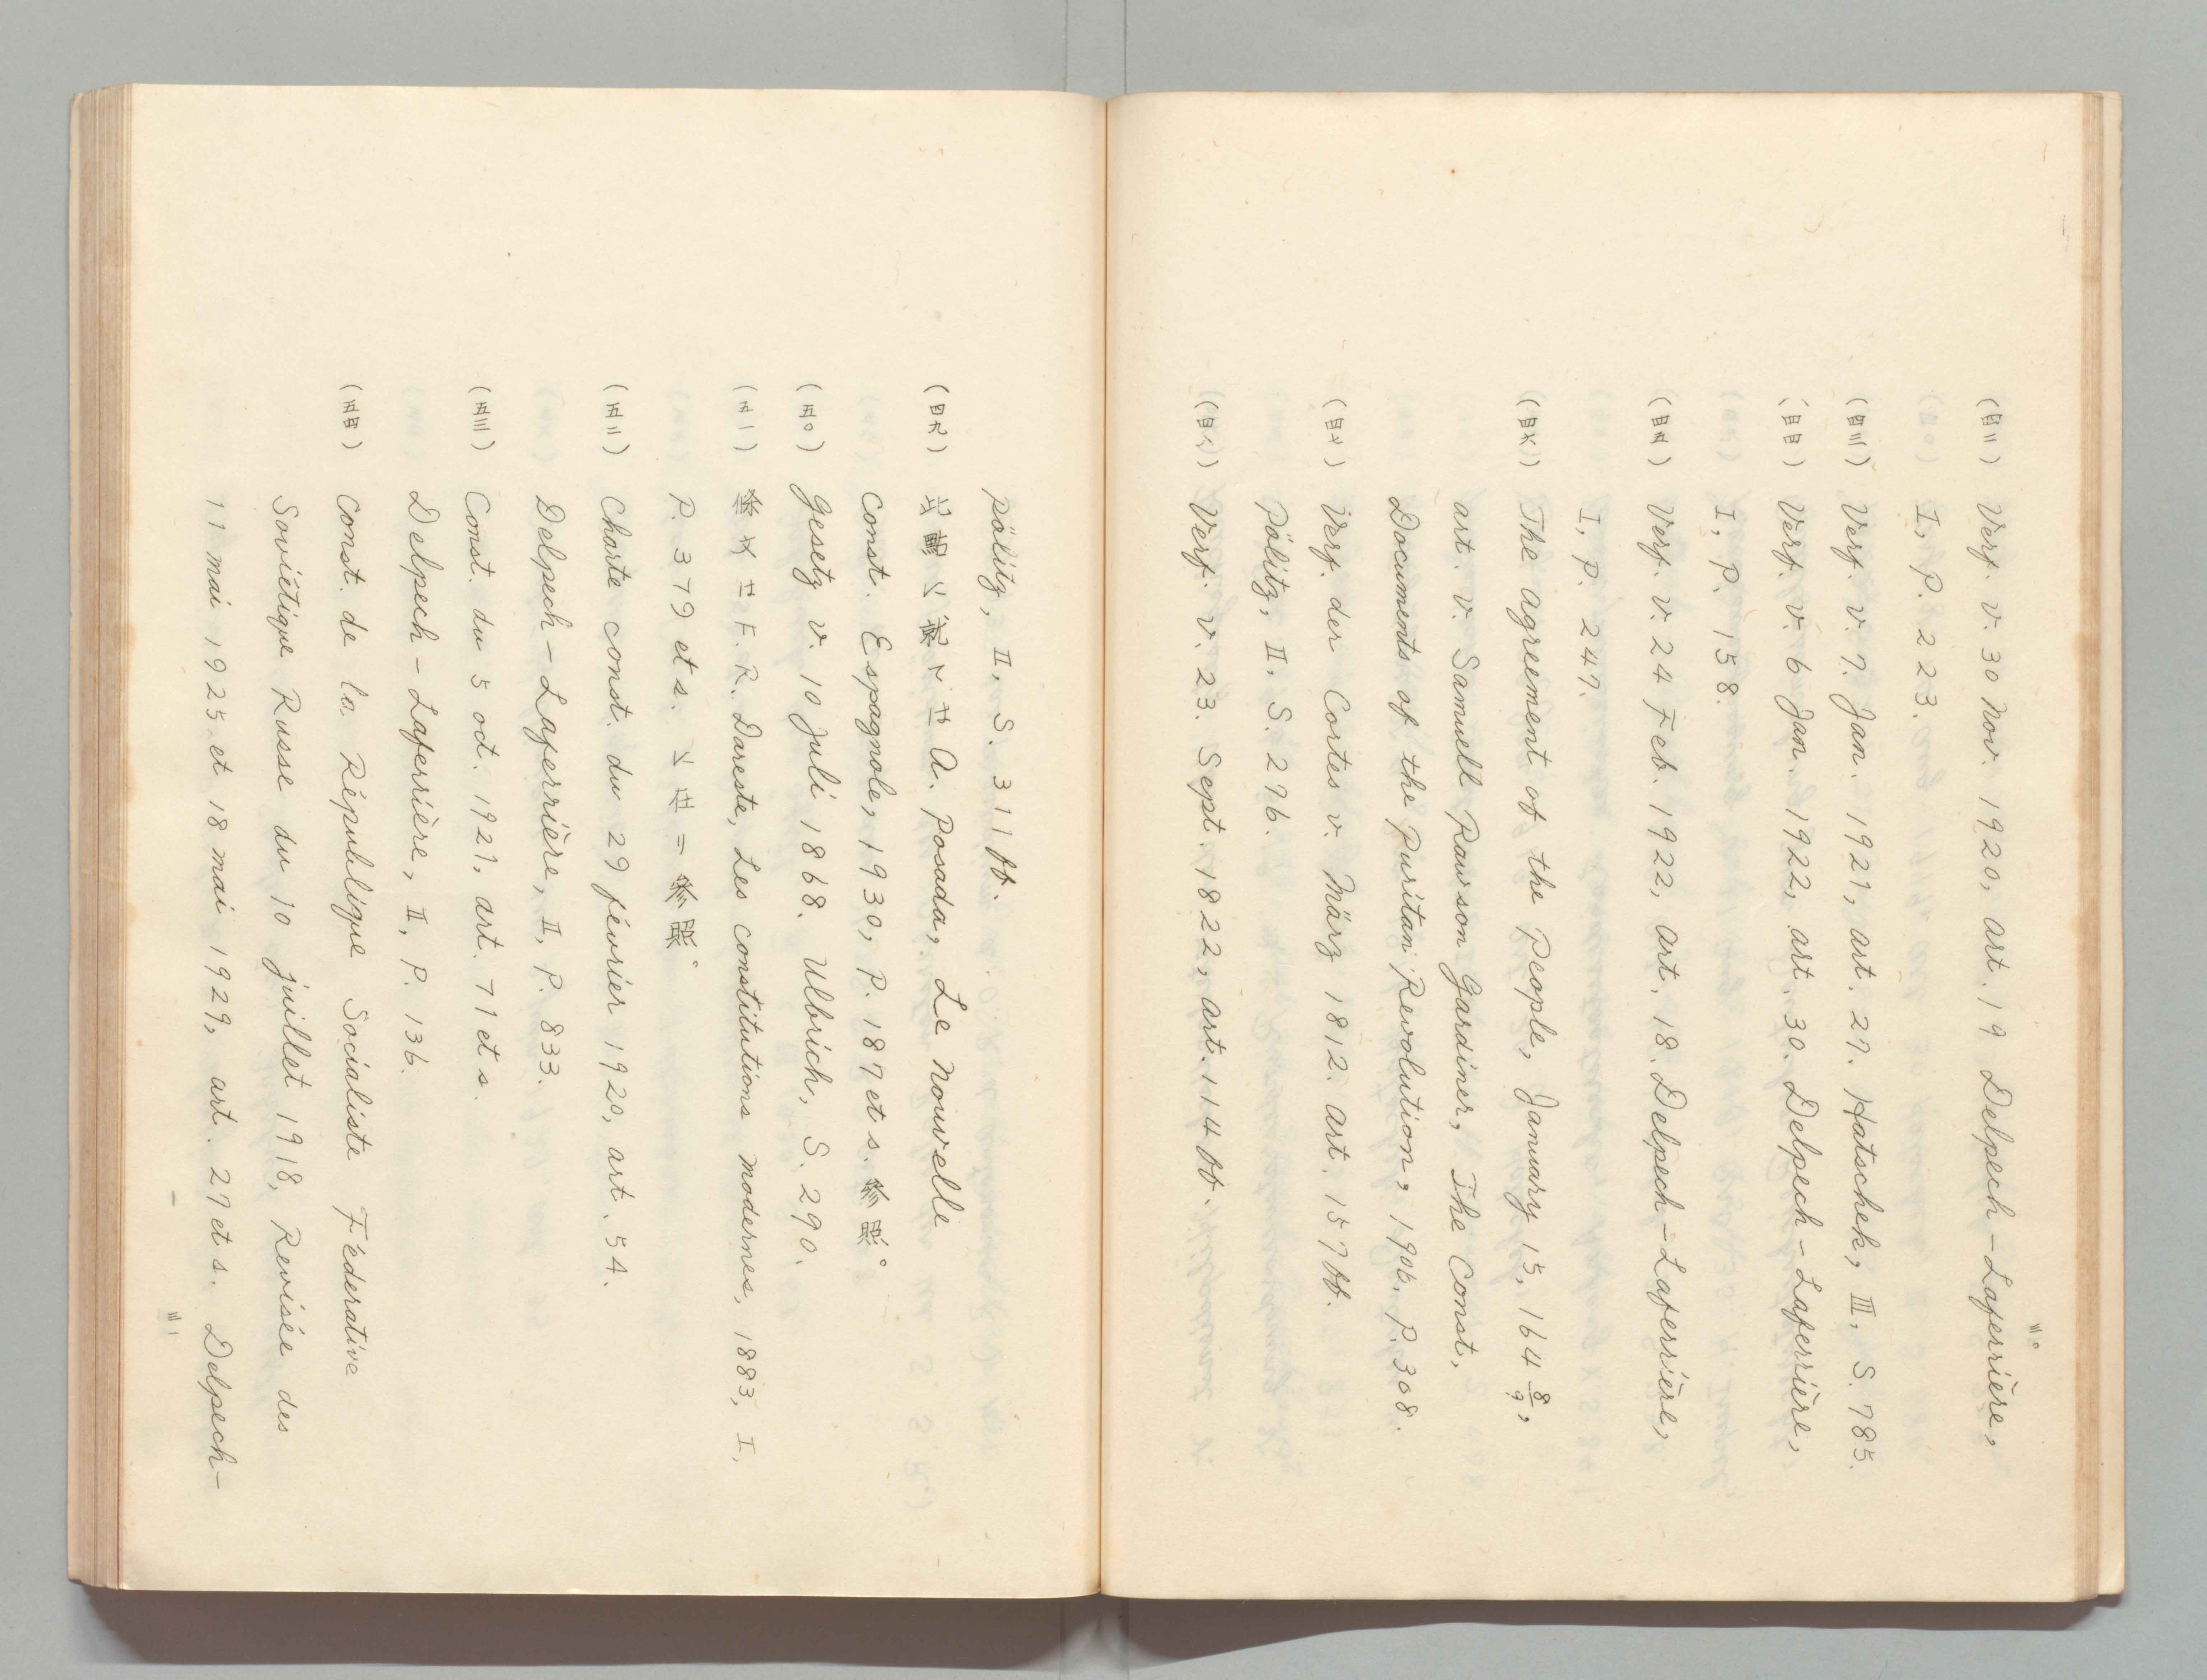 (四二) Verf. v. 30 Nov. 1920, art. 19 Delpech-Laferrière,
I, P. 223.
(四三) Verf. v. 7. Jan. 1921, art. 27. Hatschek, III, S. 785.
(四四) Verf. v. 6 Jan. 1922, art. 30. Delpech-Laferrière,
I, P. 158.
(四五) Verf. v. 24 Feb. 1922, art. 18. Delpech-Laferrière,
I, P. 247.
(四六) The agreement of the People, January 15, 164 8/9,
art. v. Samuell Rawson Gardiner, The Const.
Documents of the Puritan Revolution, 1906. P. 308.
(四七) Verf. der Cortes v. März 1812. art. 157 ff.
Pölitz, II. S. 276.
(四八) Verf. v. 23. Sept. 1822, art. 114 ff.
三〇
Pölitz, II, S. 311 ff.
(四九) A. Posada, Le nouvelle
Const. Espagnole, 1930, P. 187 et s. 參照。
(五〇) Gesetz v. 10 Juli 1868. Ulbrich, S. 290.
(五一) F. R. Dareste, Les constitutions modernes, 1883, I,
P. 379 et s. 參照。
(五二) Charte const. du 29 février 1920, art. 54.
Delpech-Laferrière, II, P. 833.
(五三) Const. du 5 oct. 1921, art. 71 et s.
Delpech-Laferrière, II, P. 136.
(五四) Const. de la République Socialiste Féderative
Soviétique Russe du 10 juillet 1918, Revisée des
11 mai 1925 et 18 mai 1929, art. 27 et s. Delpech-
三一